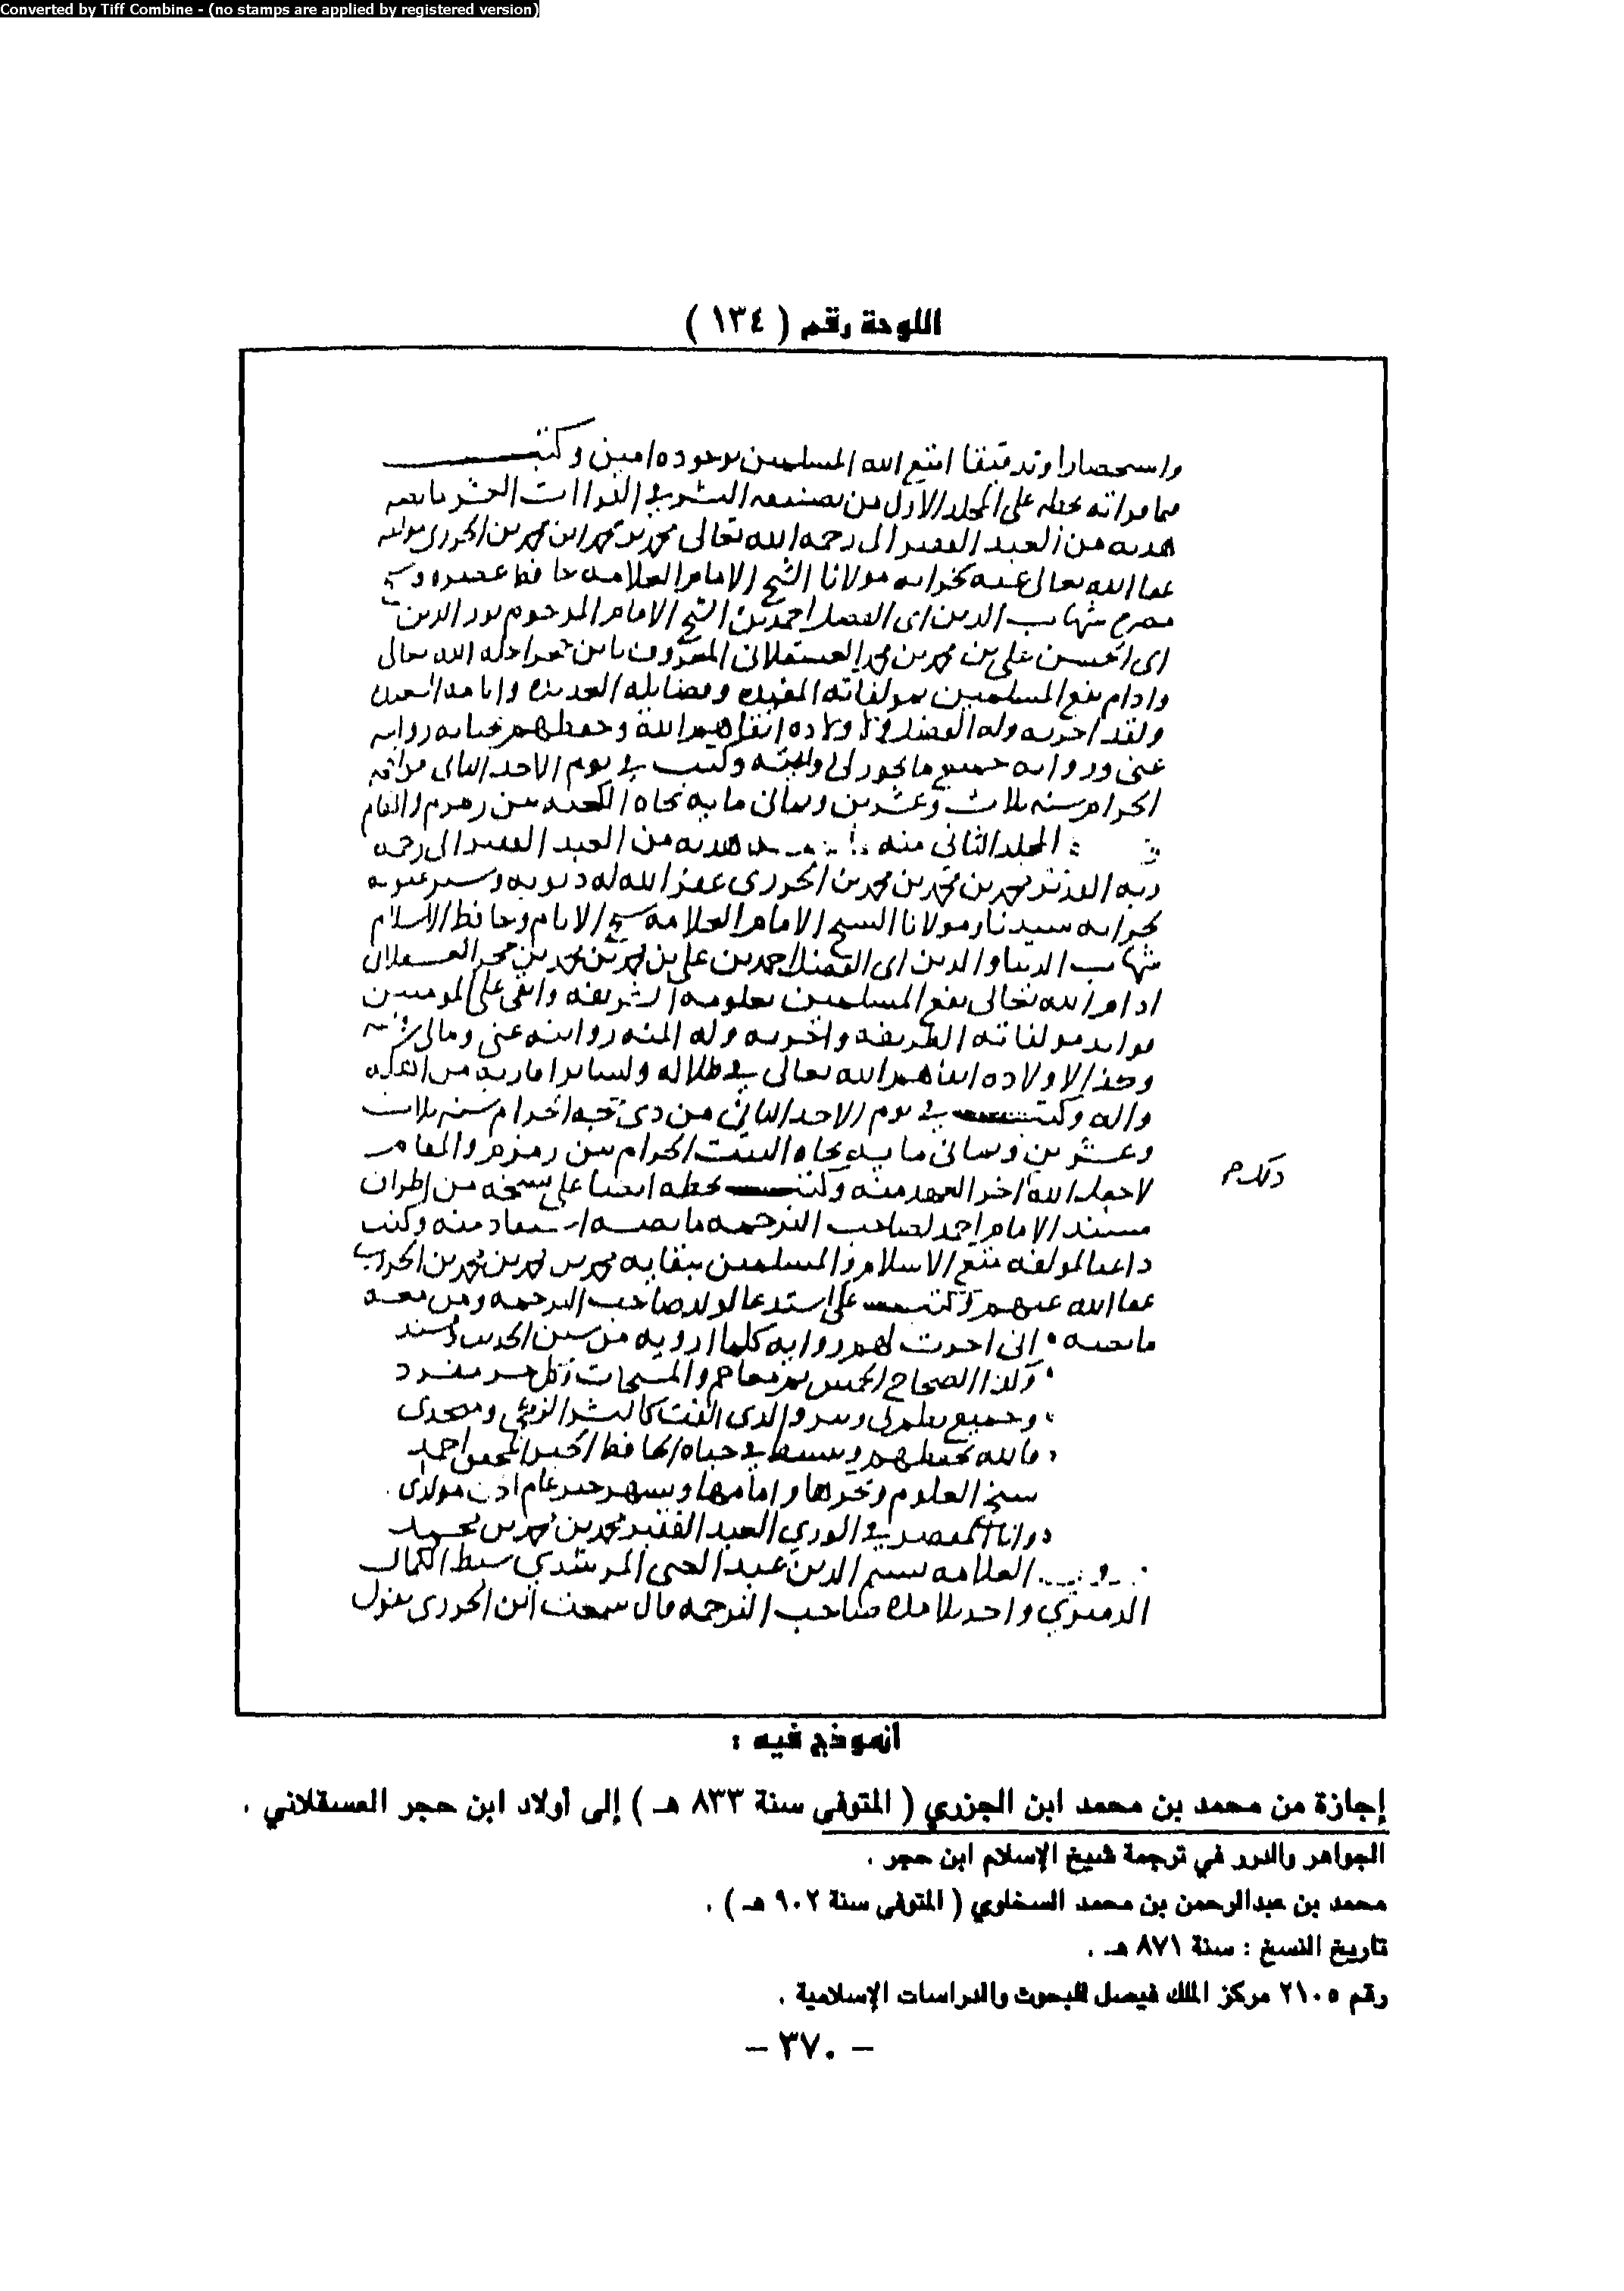 Converted by Tiff Combine - (no stamps are applied by registered version)
اللوحة رقم ( ١٣٤ )
واستحضارا وتدقيقا امتع الله المسلمين بوجوده امين وكتب
مما قراته بخطه على المجلد الاول من تصنيفه النشر في القراات العشر ما نصه
هديه من العبد الفقير الى رحمه الله تعالى محمد بن محمد ابن محمد بن الجزرى مولفه
عفا الله تعالى عنه لخزانه مولانا الشيخ الامام العلامه حافظ عصره
مصره شهاب الدين ابى الفضل احمد بن الشيخ الامام المرحوم نور الدين
ابى الحسن على بن محمد بن محمد العسقلانى المعروف بابن حجر الله تعالى
وادام نفع المسلمين بمولفاته المفيده وفضايله العديده وايامه السعيده
ولقد اجزته وله الفضل ولاولاده ابقاهم الله وحفظهم روايته
عنى وروايه جميع ما يجوز لى وكتب فى يوم الاحد الثانى من
الحرام سنه ثلاث وعشرين وثمانى مايه تجاه الكعبه بين زمزم والمقام
المجلد الثانى منه هديه من العبد الفقير الى رحمه
ربه العزيز محمد بن محمد بن محمد بن الجزرى غفر الله له ذنوبه وستر عيوبه
لخزانه سيدنا ومولانا الشيخ الامام العلامه شيخ الانام وحافظ الاسلام
شهاب الدنيا والدين ابى الفضل احمد بن على بن محمد بن محمد بن حجر العسقلانى
ادام الله تعالى نفع المسلمين بعلومه الشريفه وابقى على المومنين
فوايد مولفاته الظريفه واجزته وله المنه روايته عنى ومالى
وكذا لاولاده ابقاهم الله تعالى فى ظلاله ولساير اقاربه من
واله وكتب فى يوم الاحد الثانى من ذى حجه الحرام سنه ثلاث
وعشرين وثمانى مايه تجاه البيت الحرام بين زمزم والمقام
لا جعله الله اخر العهد منه وكتب بخطه ايضا على نسخه من اطراف
مسند الامام احمد لصاحب الترجمه ما نصه استفاد منه وكتب
داعيا لمولفه متع الاسلام والمسلمين ببقايه محمد بن محمد بن محمد بن الجزرى
عفا الله عنهم وكتب على استدعا لولد صاحب الترجمه ومن معه
ما نصه انى اجزت لهم روايه كلما ارويه من سنن الحديث ومسند
وكذا الصحاح الخمس ثم معاجم والمشيخات وكل جزء مفرد
وجميع نظم لى ونثر والذى الفت كالنشر الزكى ومنجدى
فالله يحفظهم ويبسط فى حياه الحافظ الحبر المحقق احمد
دوانا المقصر فى الورى العبد الفقير محمد بن محمد بن محمد
العلامه نسيم الدين عبد الغنى المرشدي سبط الكمال
الدميري واحد تلامذه صاحب الترجمه قال سمعت ابن الجزرى يقول
انموذج فيه :
إجازة من محمد بن محمد ابن الجزري ( المتوفى سنة ٨٣٣ هـ ) إلى أولاد ابن حجر العسقلاني .
الجواهر والدرر في ترجمة شيخ الإسلام ابن حجر .
محمد بن عبدالرحمن بن محمد السخاوي ( المتوفى سنة ٩٠٢ هـ ) .
تاريخ النسخ : سنة ٨٧١ هـ .
رقم ٢١٠٥ مركز الملك فيصل للبحوث والدراسات الإسلامية .
– ٣٧٠ –